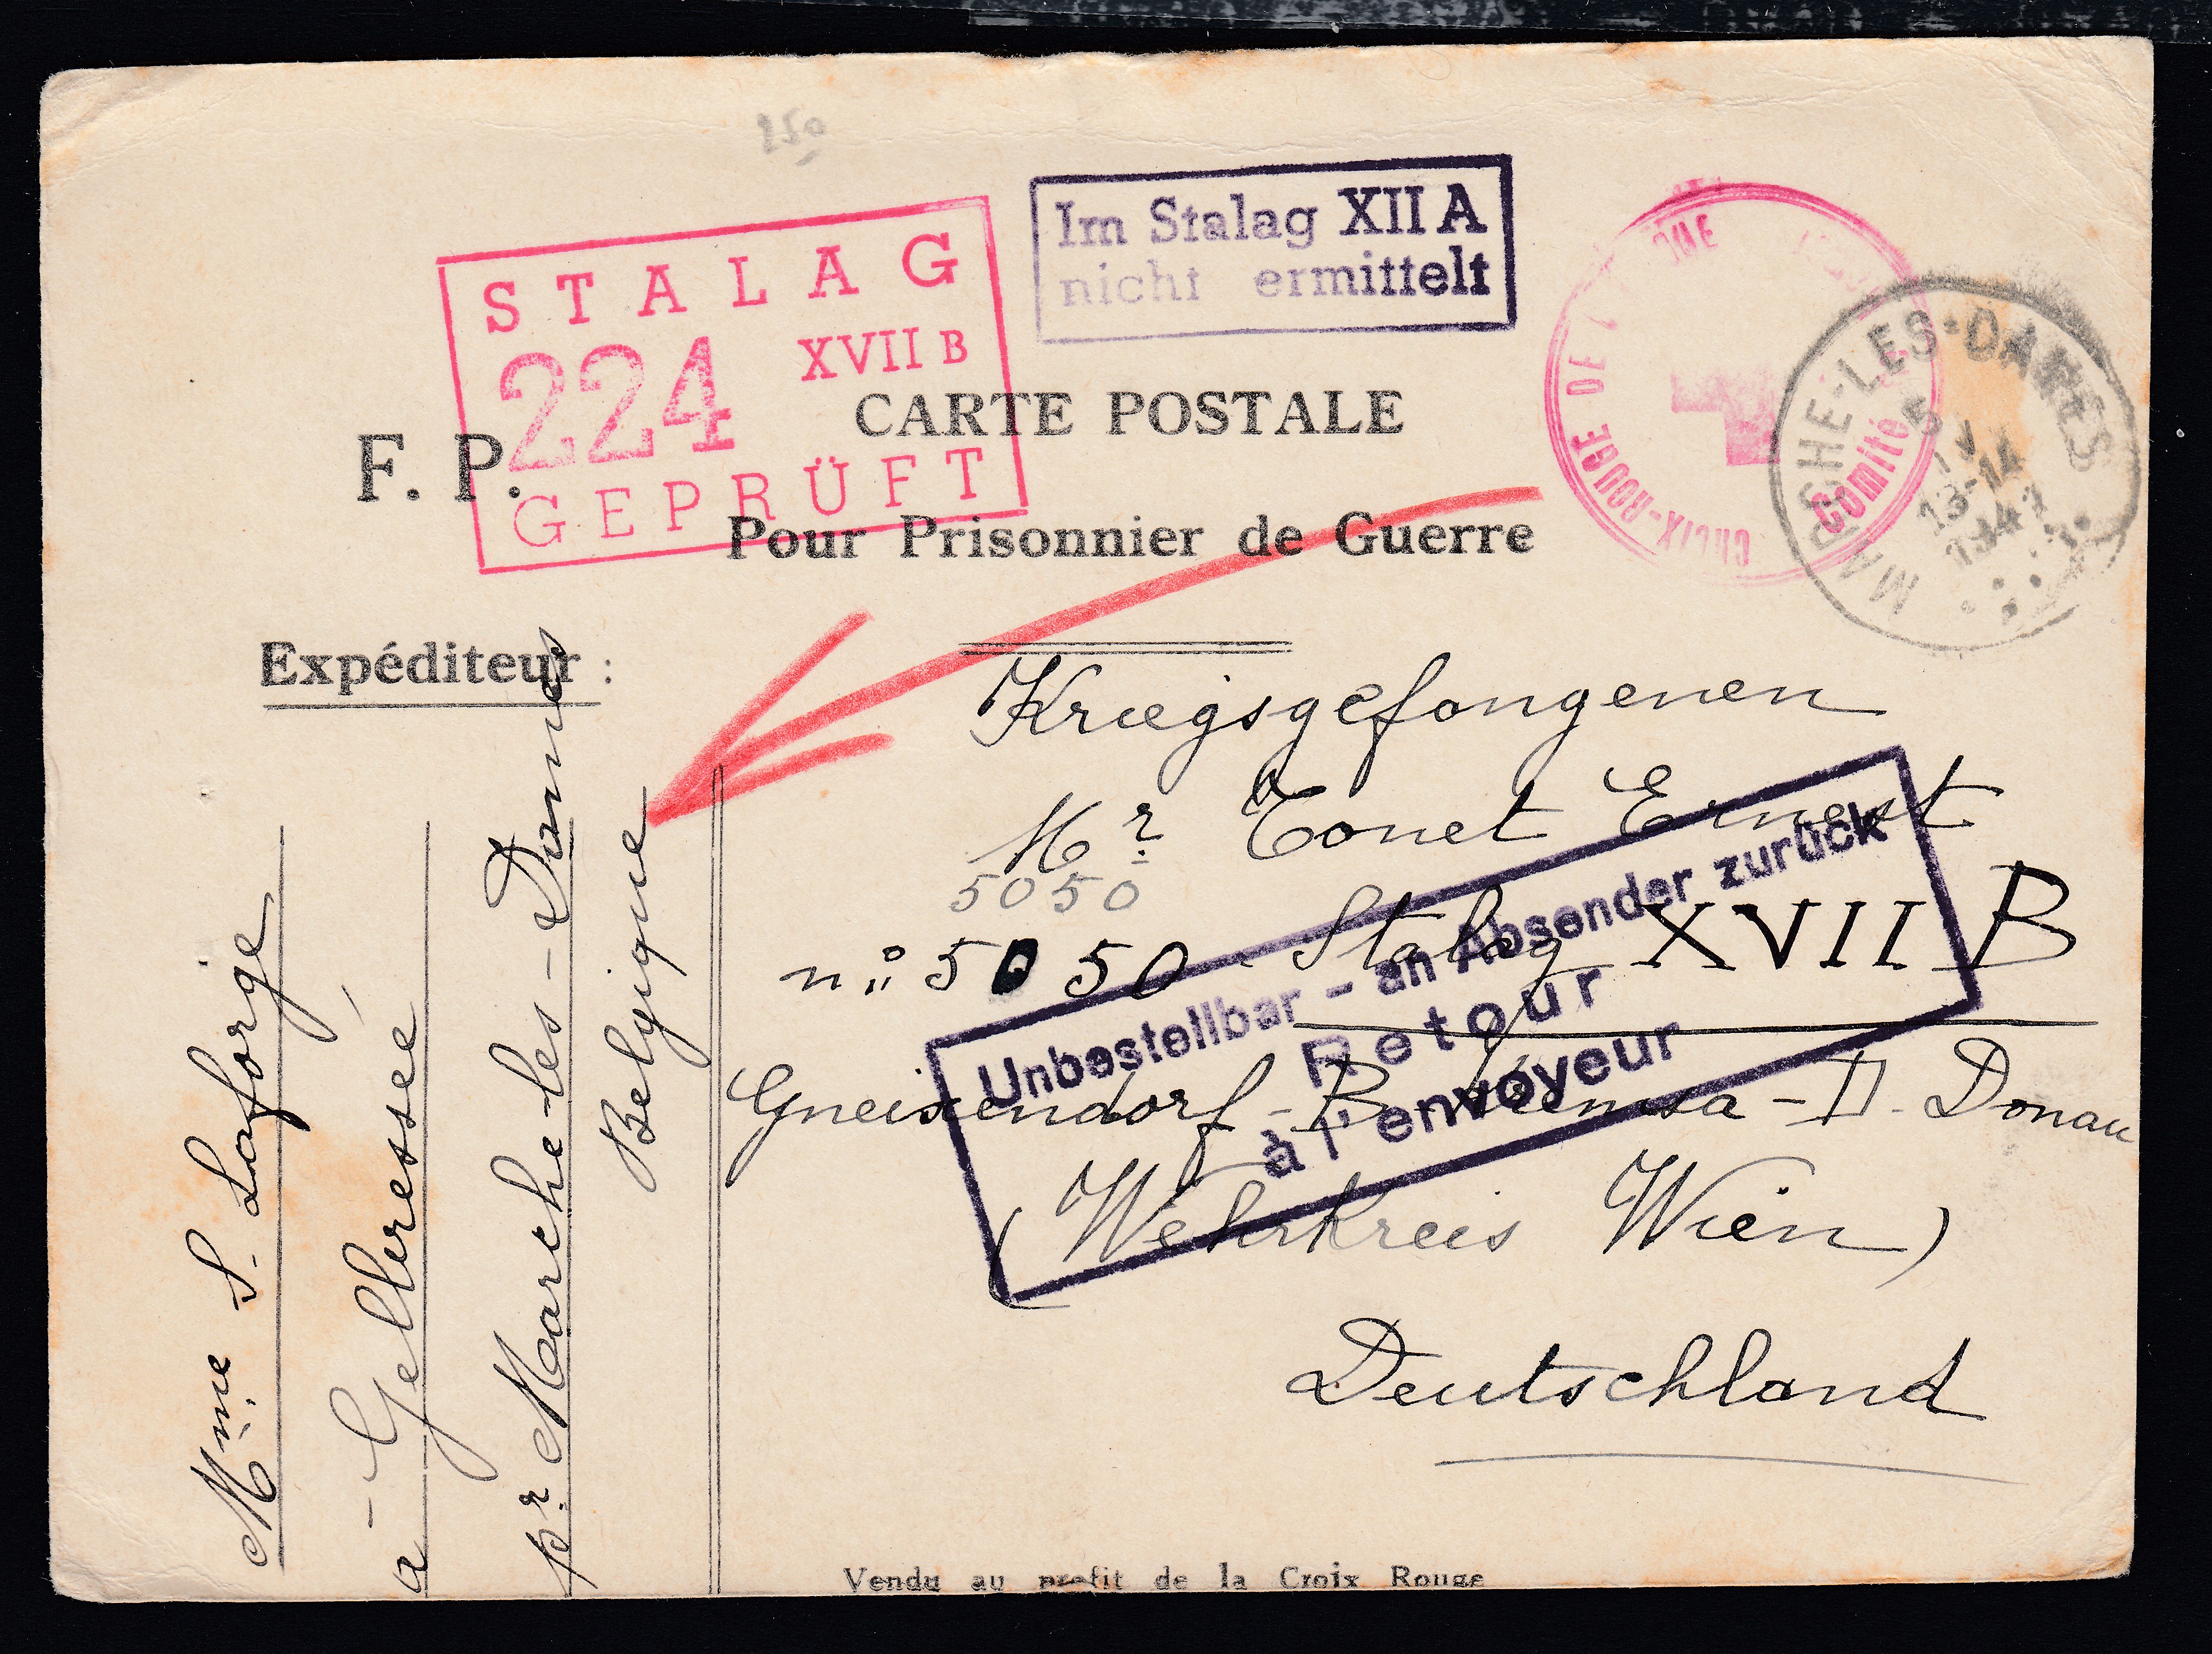 250
Im Stalag XII A
nicht ermittelt
STALAG
224 XVII B
GEPRÜFT
CROIX-ROUGE DE
Comité
MARCHE-LES-DAMES
13-14
F. P.
CARTE POSTALE
Pour Prisonnier de Guerre
Expéditeur :
Mme S. Laforge
à Gelbressée
pr Marche-les-Dames
Belgique
Kriegsgefangenen
Mr Tonet Ernest
5050
n° 5050 - Stalag XVII B
Gneixendorf - B. Kremsa - D. Donau
(Wehrkreis Wien)
Deutschland
Unbestellbar - an Absender zurück
Retour
à l'envoyeur
Vendu au profit de la Croix Rouge